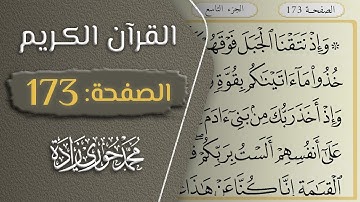 القرآن الكريم
الصفحة: 173
محمد خوري زادة
الصفحة 173
الجزء التاسع
۞ وَإِذْ نَتَقْنَا ٱلْجَبَلَ فَوْقَهُمْ
خُذُوا۟ مَآ ءَاتَيْنَٰكُم بِقُوَّةٍ
وَإِذْ أَخَذَ رَبُّكَ مِنۢ بَنِىٓ ءَادَمَ
عَلَىٰٓ أَنفُسِهِمْ أَلَسْتُ بِرَبِّكُمْ
ٱلْقِيَٰمَةِ إِنَّا كُنَّا عَنْ هَٰذَا